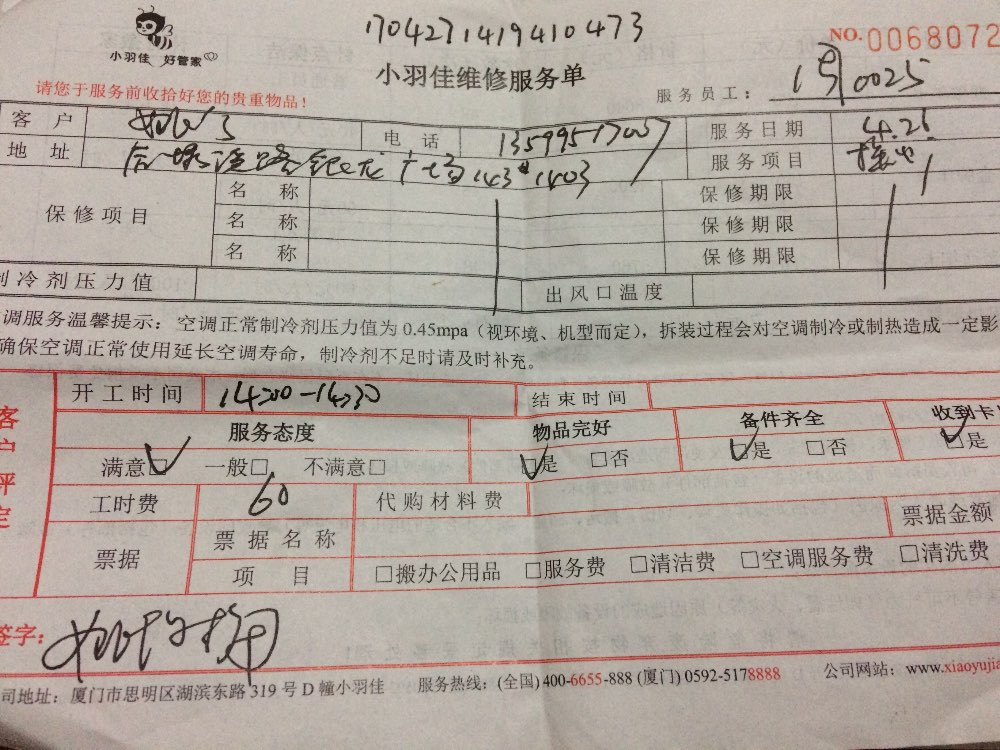 1704271419410473
NO.0068072
小羽佳 好管家
小羽佳维修服务单
请您于服务前收拾好您的贵重物品！
服务员工： 1号 0025
客户 电话 13599517057 服务日期
地址 服务项目
保修项目 名称 保修期限
名称 保修期限
名称 保修期限
制冷剂压力值 出风口温度
调服务温馨提示：空调正常制冷剂压力值为 0.45mpa（视环境、机型而定），拆装过程会对空调制冷或制热造成一定影
确保空调正常使用延长空调寿命，制冷剂不足时请及时补充。
客户评定
开工时间 14:00-14:30 结束时间
服务态度 物品完好 备件齐全 收到卡
满意□ 一般□ 不满意□ □是 □否 □是 □否 □是
工时费 60 代购材料费
票据 票据名称 票据金额
项目 □搬办公用品 □服务费 □清洁费 □空调服务费 □清洗费
签字：
司地址：厦门市思明区湖滨东路 319 号 D 幢小羽佳 服务热线：(全国) 400-6655-888 (厦门) 0592-5178888 公司网站：www.xiaoyujia